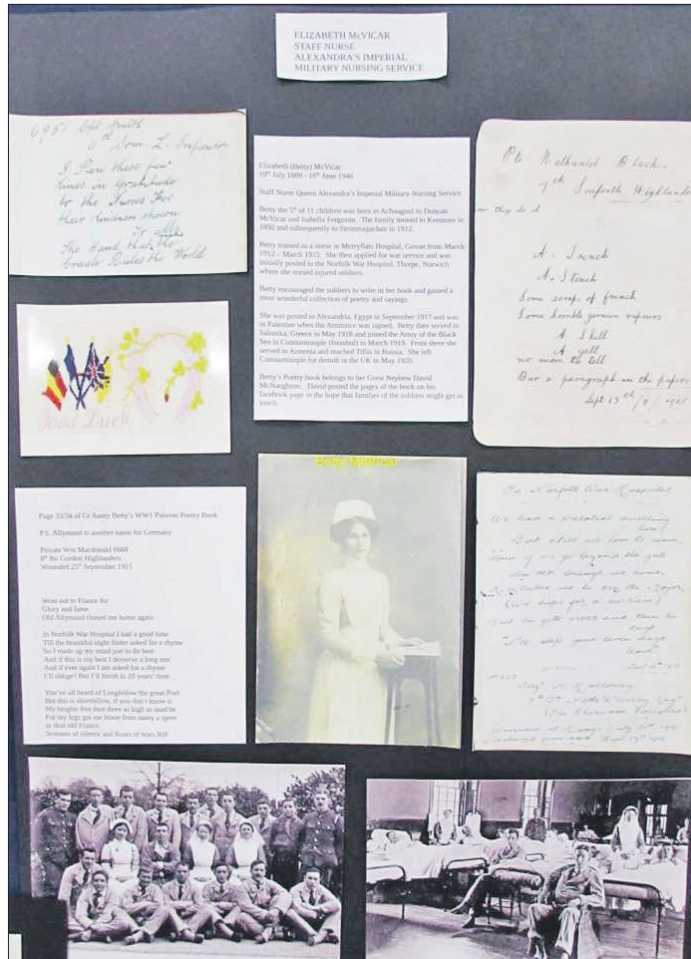 ELIZABETH McVICAR
STAFF NURSE
ALEXANDRA'S IMPERIAL
MILITARY NURSING SERVICE
6951 Cpl Smith
6th Som. L. Infantry
I Pen these few
lines in gratitude
to the Nurses For
their kindness shown
To all
The Hand that the
Cradle Rules the World
Good Luck
Elizabeth (Betty) McVicar
19th July 1888 - 16th June 1946
Staff Nurse Queen Alexandra's Imperial Military Nursing Service
Betty the 5th of 11 children was born in Achnagoul to Duncan
McVicar and Isabella Ferguson. The family moved to Kenmore in
1892 and subsequently to Stronmagachan in 1912.
Betty trained as a nurse in Merryflats Hospital, Govan from March
1912 – March 1915. She then applied for war service and was
initially posted to the Norfolk War Hospital, Thorpe, Norwich
where she nursed injured soldiers.
Betty encouraged the soldiers to write in her book and gained a
most wonderful collection of poetry and sayings.
She was posted to Alexandria, Egypt in September 1917 and was
in Palestine when the Armistice was signed. Betty then served in
Salonika, Greece in May 1918 and joined the Army of the Black
Sea in Constantinople (Istanbul) in March 1919. From there she
served in Armenia and reached Tiflis in Russia. She left
Constantinople for demob in the UK in May 1920.
Betty's Poetry book belongs to her Great Nephew David
McNaughton. David posted the pages of the book on his
facebook page in the hope that families of the soldiers might get in
touch.
Pte Nathaniel Black.
7th Seaforth Highlande
they do it
A. Trench
A. Stench
Some scraps of french
Some horrible german vapours
A Shell
A yell
no more to tell
Bar a paragraph in the papers
Sept 13th
Page 33/34 of Gt Aunty Betty's WW1 Patients Poetry Book
P.S. Allymann is another name for Germany
Private Wm Macdonald 6668
8th Bn Gordon Highlanders
Wounded 25th September 1915
Went out to France for
Glory and fame
Old Allymand chased me home again
In Norfolk War Hospital I had a good time
Till the beautiful night Sister asked for a rhyme
So I made up my mind just to do best
And if this is my best I deserve a long rest
And if ever again I am asked for a rhyme
I'll oblige? But I'll finish in 20 years' time
You've all heard of Longfellow the great Poet
But this is shortfellow, if you don't know it
My heights five foot three as high as mud be
For my legs got me hame from many a spree
in dear old France.
Screams of silence and Roars of tears RIP
Betty McVicar
Norfolk War Hospital
We have a palatial dwelling
here,
But still we love to roam,
if we go beyond the gate
(We hope for a)
But he gets cross and
says
"I'll stop your